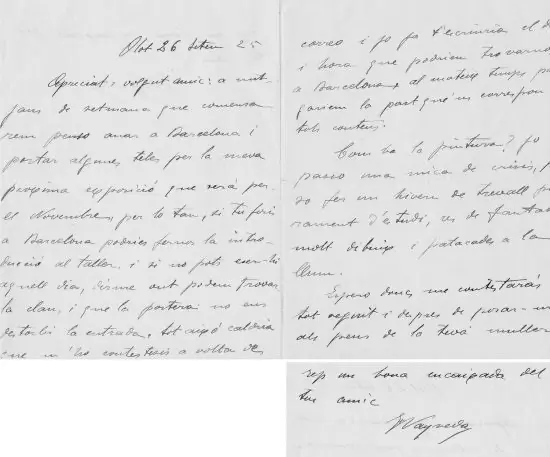 Olot 26 Setem 25
Apreciat i volgut amic: a mit-
jans de setmana que comensa
rem penso anar a Barcelona i
portar algunes teles per la meva
proxima exposició que serà per
el Novembre, per lo tan, si tu fosis
a Barcelona podries fernos la intro-
ducció al taller, i si no pots esser-hi
aquell dia, dirme ont podem trovar
la clau, i que la portera no ens
destorbi la entrada. tot aixó caldria
que m'ho contestesis a volta de
correo i jo ja t'escriuria el d
i hora que podriem trovarno
a Barcelona, al mateix temps pa
gariem la part que'ns correspon
tots contens.
Com va la pintura? jo
passo una mica de crisis, p
so fer un hivern de trevall
rament d'estudi, res de fanta
molt dibuix i patacades a la
llum.
Espero doncs me contestaràs
tot seguit i despres de posar-m
als peus de la teva muller
rep un bona encaixada del
teu amic
Vayreda